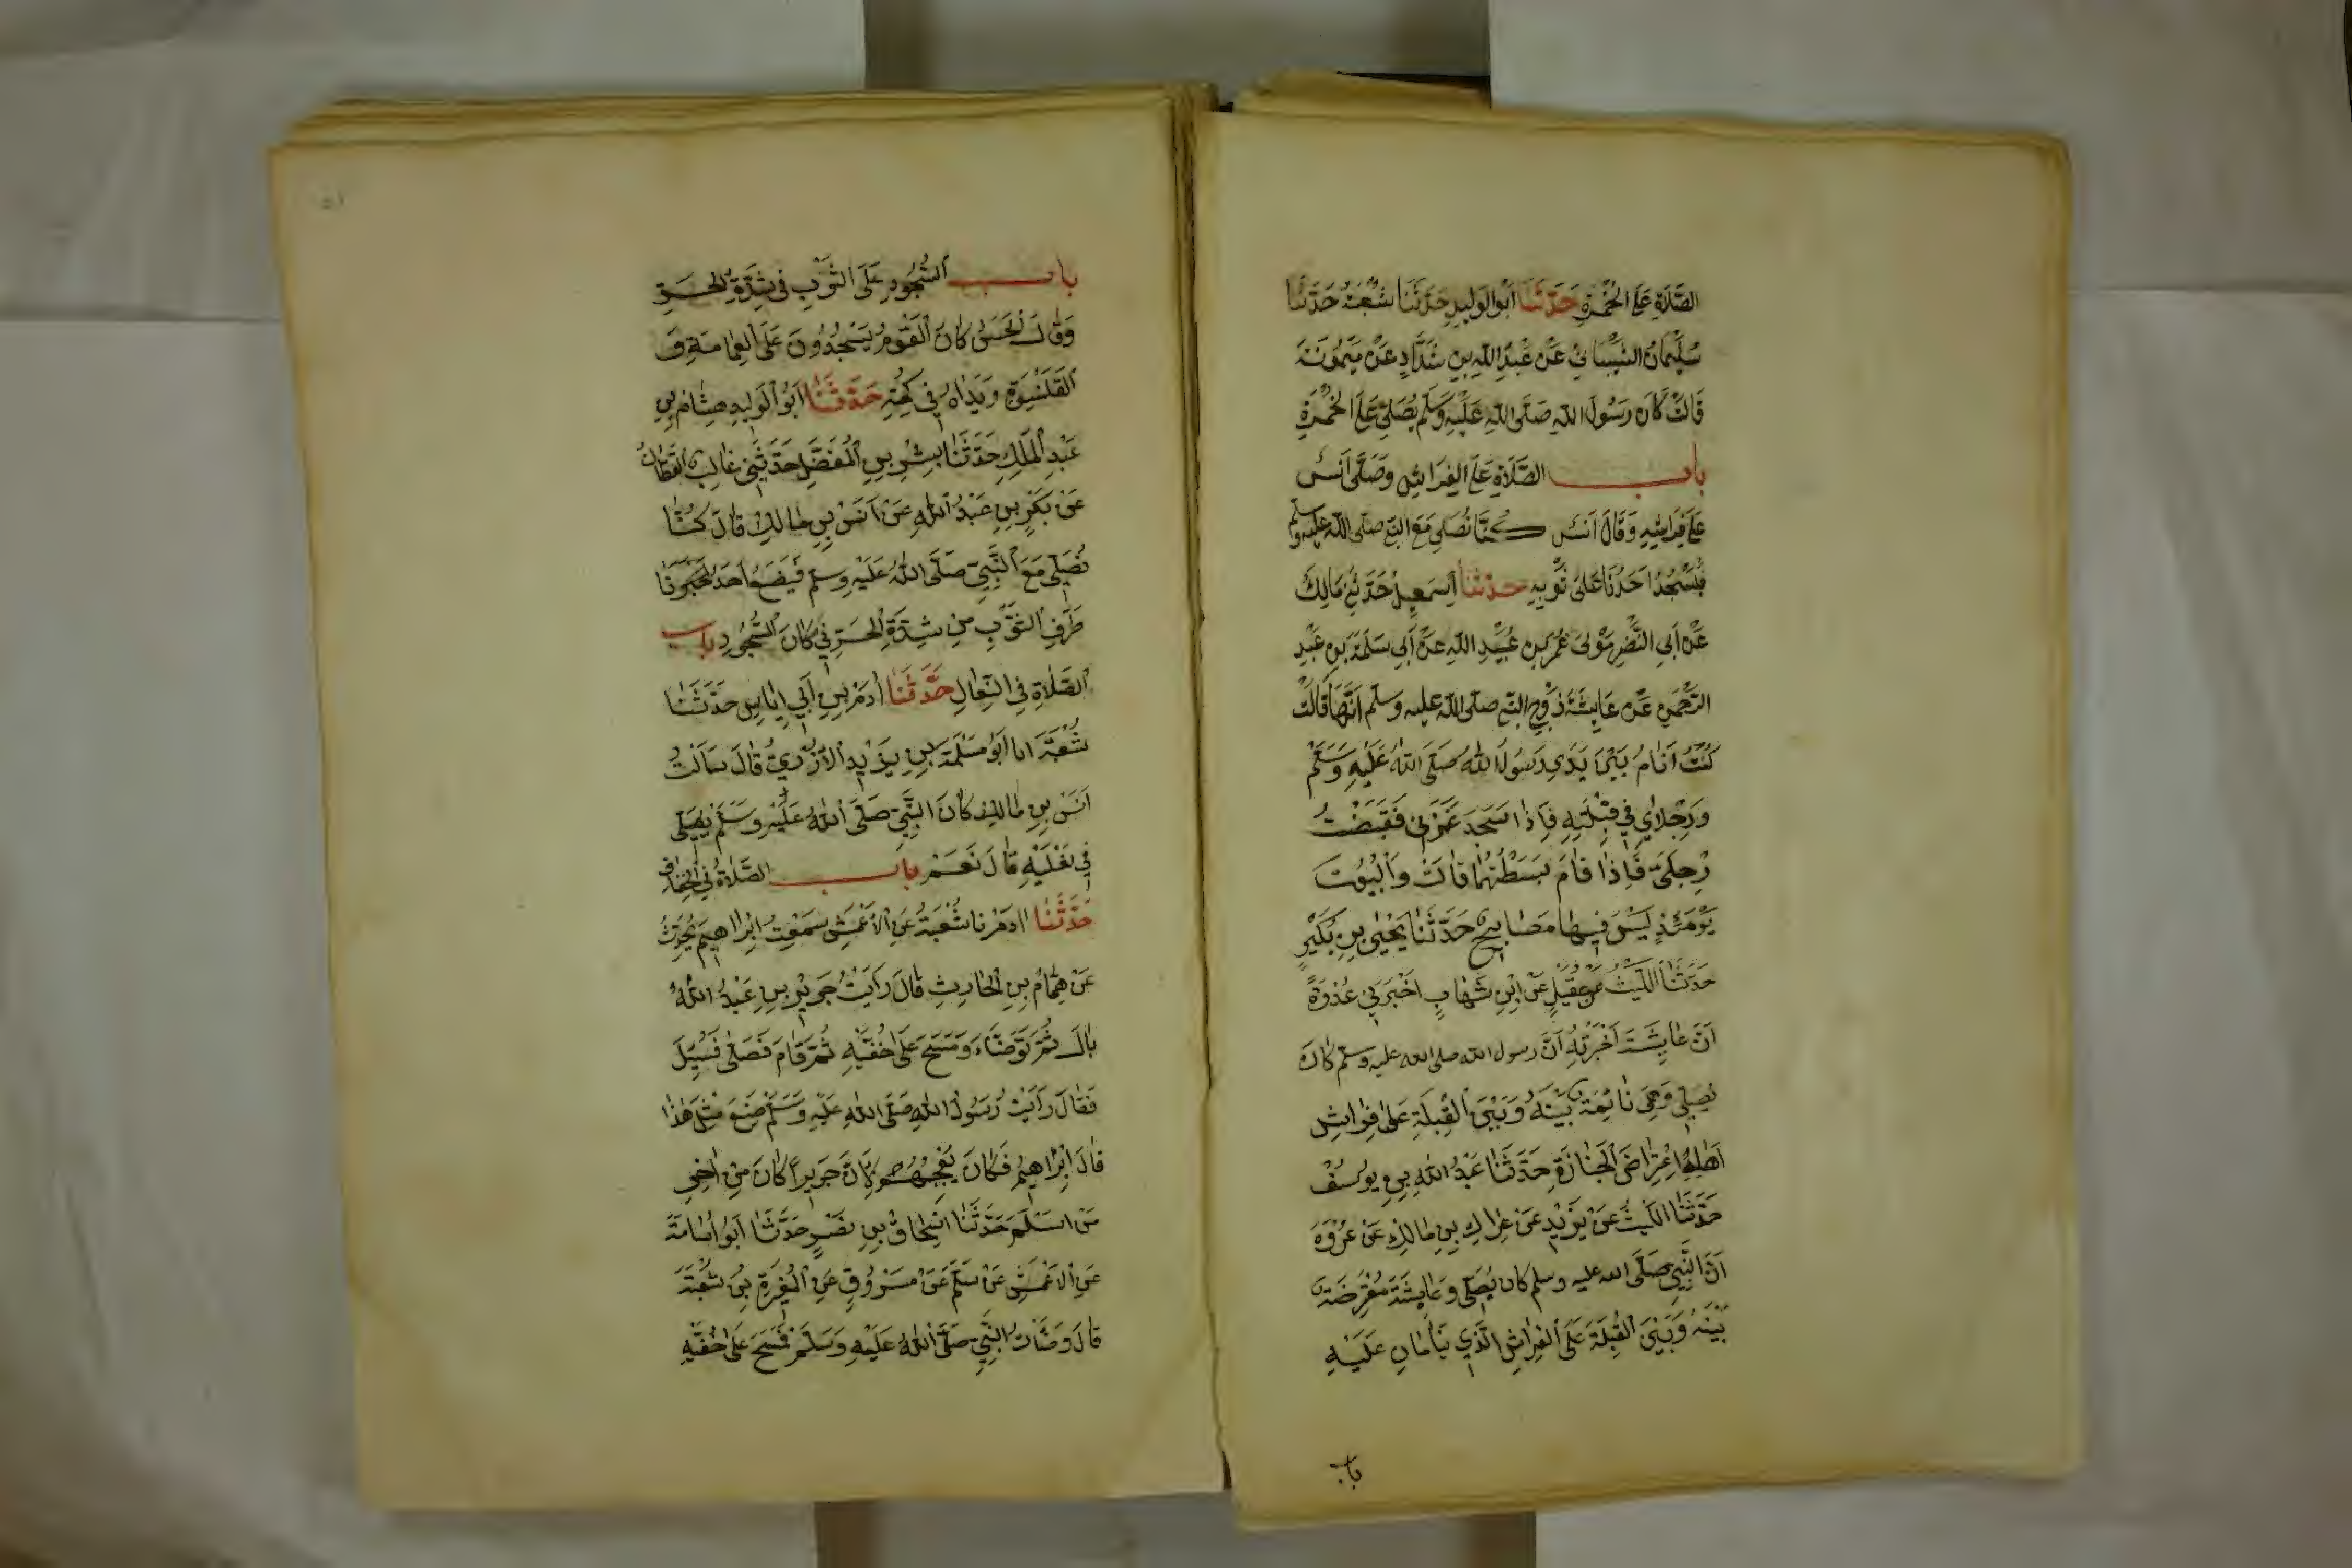 الصَّلَاةِ عَلَى الخُمْرَةِ حَدَّثَنَا أبُو الوَلِيدِ حَدَّثَنَا شُعْبَةُ حَدَّثَنَا
سُلَيْمَانُ الشَّيْبَانِيُّ عَنْ عَبْدِ اللّهِ بنِ شَدَّادٍ عَنْ مَيْمُونَةَ
قَالَتْ كَانَ رَسُولُ اللّهِ صَلَّى اللّهِ عَلَيْهِ وَسَلَّم يُصَلِّي عَلَى الخُمْرَةِ
باب الصَّلَاةِ عَلَى الفِرَاشِ وَصَلَّى أنَسٌ
عَلَى فِرَاشِهِ وَقَالَ أنَسٌ كُنَّا نُصَلِّي مَعَ النبي صلى اللّه عليه وسلم
فَيَسْجُدُ أحَدُنَا عَلَى ثَوْبِهِ حدثنا إسْمَعِيلُ حَدَّثَنِي مَالِكٌ
عَنْ أَبِي النَّضْرِ مَوْلَى عُمَرَ بنِ عُبَيْدِ اللّهِ عَنْ أَبِي سَلَمَةَ بنِ عَبْدِ
الرَّحْمَنِ عَنْ عَايِشَةَ زَوْجِ النبي صلى اللّه عليه وسلم أنَّهَا قَالَتْ
كُنْتُ أَنَامُ بَيْنَ يَدَيْ رَسُولِ اللّٰهِ صَلَّى اللّٰهُ عَلَيْهِ وَسَلَّم
وَرِجْلَايَ فِي قِبْلَتِهِ فَإِذَا سَجَدَ غَمَزَنِي فَقَبَضْتُ
رِجْلَيَّ فَإِذَا قَامَ بَسَطْتُهُمَا قَالَتْ وَالْبُيُوتُ
يَوْمَئِذٍ لَيْسَ فِيهَا مَصَابِيحُ حَدَّثَنَا يَحْيَى بنِ بُكَيْرٍ
حَدَّثَنَا اللَّيْثُ عَنْ عُقَيْلٍ عَنْ ابْنِ شِهَابٍ أَخْبَرَنِي عُرْوَةُ
أَنَّ عَايِشَةَ أَخْبَرَتْهُ أَنَّ رسول اللّه صلى الله عليه وسلم كَانَ
يُصَلِّي وَهِيَ نَائِمَةٌ بَيْنَهُ وَبَيْنَ الْقِبْلَةِ عَلَى فِرَاشِ
أَهْلِهِ اعْتِرَاضَ الْجَنَازَةِ حَدَّثَنَا عَبْدُ اللّٰهِ بنِ يُوسُفَ
حَدَّثَنَا اللَّيْثُ عَنْ يَزِيدَ عَنْ عِرَاكِ بنِ مَالِكٍ عَنْ عُرْوَةَ
أَنَّ النَّبِيَّ صَلَّى الله عليه وسلم كان يُصَلِّي وَعَايِشَةُ مُعْتَرِضَةٌ
بَيْنَهُ وَبَيْنَ الْقِبْلَةِ عَلَى الْفِرَاشِ الَّذِي يَنَامَانِ عَلَيْهِ
باب
باب السُّجُودِ عَلَى الثَّوْبِ فِي شِدَّةِ الحَرِّ
وَقَالَ الْحَسَنُ كَانَ الْقَوْمُ يَسْجُدُونَ عَلَى الْعِمَامَةِ وَ
الْقَلَنْسُوَةِ وَيَدَاهُ فِي كُمِّهِ حَدَّثَنَا أَبُو الْوَلِيدِ هِشَامُ بنِ
عَبْدِ الْمَلِكِ حَدَّثَنَا بِشْرُ بنِ الْمُفَضَّلِ حَدَّثَنِي غَالِبٌ الْقَطَّانُ
عَنْ بَكْرِ بنِ عَبْدُ اللّٰهِ عَنْ أَنَسِ بنِ مَالِكٍ قَالَ كُنَّا
نُصَلِّي مَعَ النَّبِيِّ صَلَّى اللّٰهُ عَلَيْهِ وسلم فَيَضَعُ أَحَدُنَا
طَرَفَ الثَّوْبِ مِنْ شِدَّةِ الْحَرِّ فِي مَكَانِ السُّجُودِ باب
الصَّلَاةِ فِي النِّعَالِ حَدَّثَنَا آدَمُ بنِ أَبِي إِيَاسٍ حَدَّثَنَا
شُعْبَةُ انا أَبُو مَسْلَمَةَ بنِ يَزِيدَ الْأَزْدِيُّ قَالَ سَأَلْتُ
أَنَسَ بنِ مَالِكٍ كَانَ النَّبِيُّ صَلَّى اللّٰهُ عَلَيْهِ وَسَلَّمَ يُصَلِّي
فِي نَعْلَيْهِ قَالَ نَعَمْ باب الصَّلَاةُ فِي الْخِفَافِ
حَدَّثَنَا آدَمُ نا شُعْبَةُ عَنِ الْأَعْمَشِ سَمِعْتُ إِبْرَاهِيمَ يُحَدِّثُ
عَنْ هَمَّامِ بنِ الْحَارِثِ قَالَ رَأَيْتُ جَرِيرَ بنِ عَبْدُ اللّٰهِ
بَالَ ثُمَّ تَوَضَّاءَ وَمَسَحَ عَلَى خُفَّيْهِ ثُمَّ قَامَ فَصَلَّى فَسُئِلَ
فَقَالَ رَأَيْتُ رَسُولُ اللّٰهِ صَلَّى اللّٰهِ عَلَيْهِ وَسَلَّمَ صَنَعَ مِثْلَ هَذَا
قَالَ إِبْرَاهِيمُ فَكَانَ يُعْجِبُهُمْ لِأَنَّ جَرِيرًا كَانَ مِنْ آخِرِ
مَنْ أَسْلَمَ حَدَّثَنَا إِسْحَاقُ بنِ نَصْرٍ حَدَّثَنَا أَبُو أُسَامَةَ
عَنِ الْأَعْمَشِ عَنْ مُسْلِمٍ عَنْ مَسْرُوقٍ عَنِ الْمُغِيرَةِ بْنِ شُعْبَةَ
قَالَ وَضَّأْتُ النَّبِيَّ صَلَّى اللّٰهُ عَلَيْهِ وَسَلَّمَ فَمَسَحَ عَلَى خُفَّيْهِ